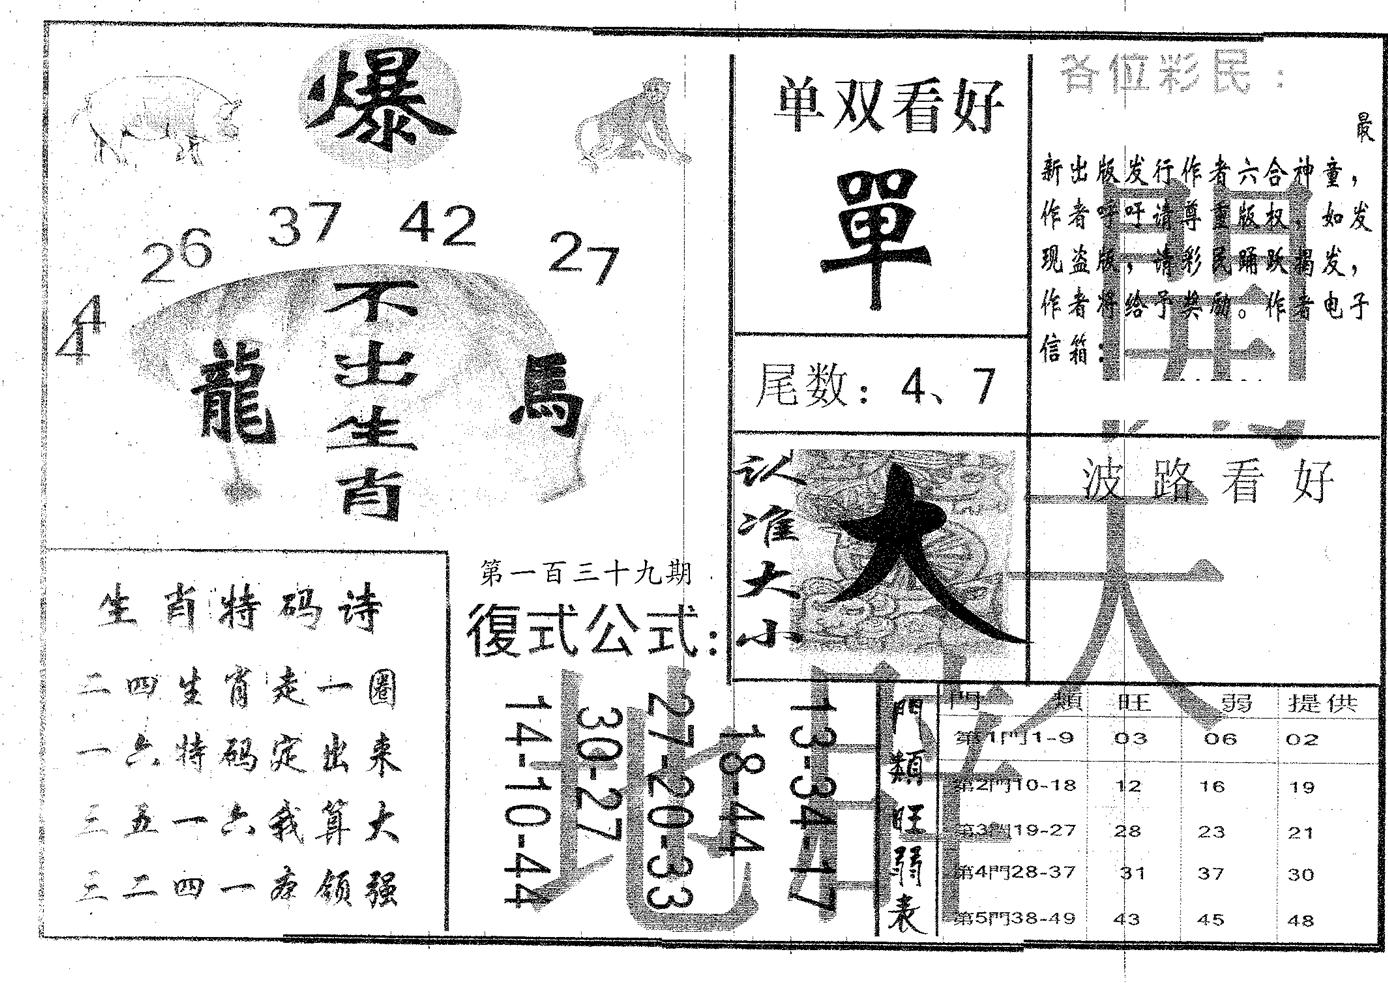 爆
44
26
37
42
27
不出生肖
龍
馬
生肖特码诗
二四生肖走一圈
一六特码定出来
三五一六我算大
三二四一本领强
第一百三十九期
復式公式:
14-10-44
30-27
27-20-33
18-44
13-34-17
单双看好
單
尾数：4、7
认准大小
大
各位彩民：
最
新出版发行作者六合神童，
作者呼吁请尊重版权，如发
现盗版，请彩民踊跃揭发，
作者将给予奖励。作者电子
信箱：
波路看好
門類旺弱表
門 類 旺 弱 提供
第1門1-9 03 06 02
第2門10-18 12 16 19
第3門19-27 28 23 21
第4門28-37 31 37 30
第5門38-49 43 45 48
天
地